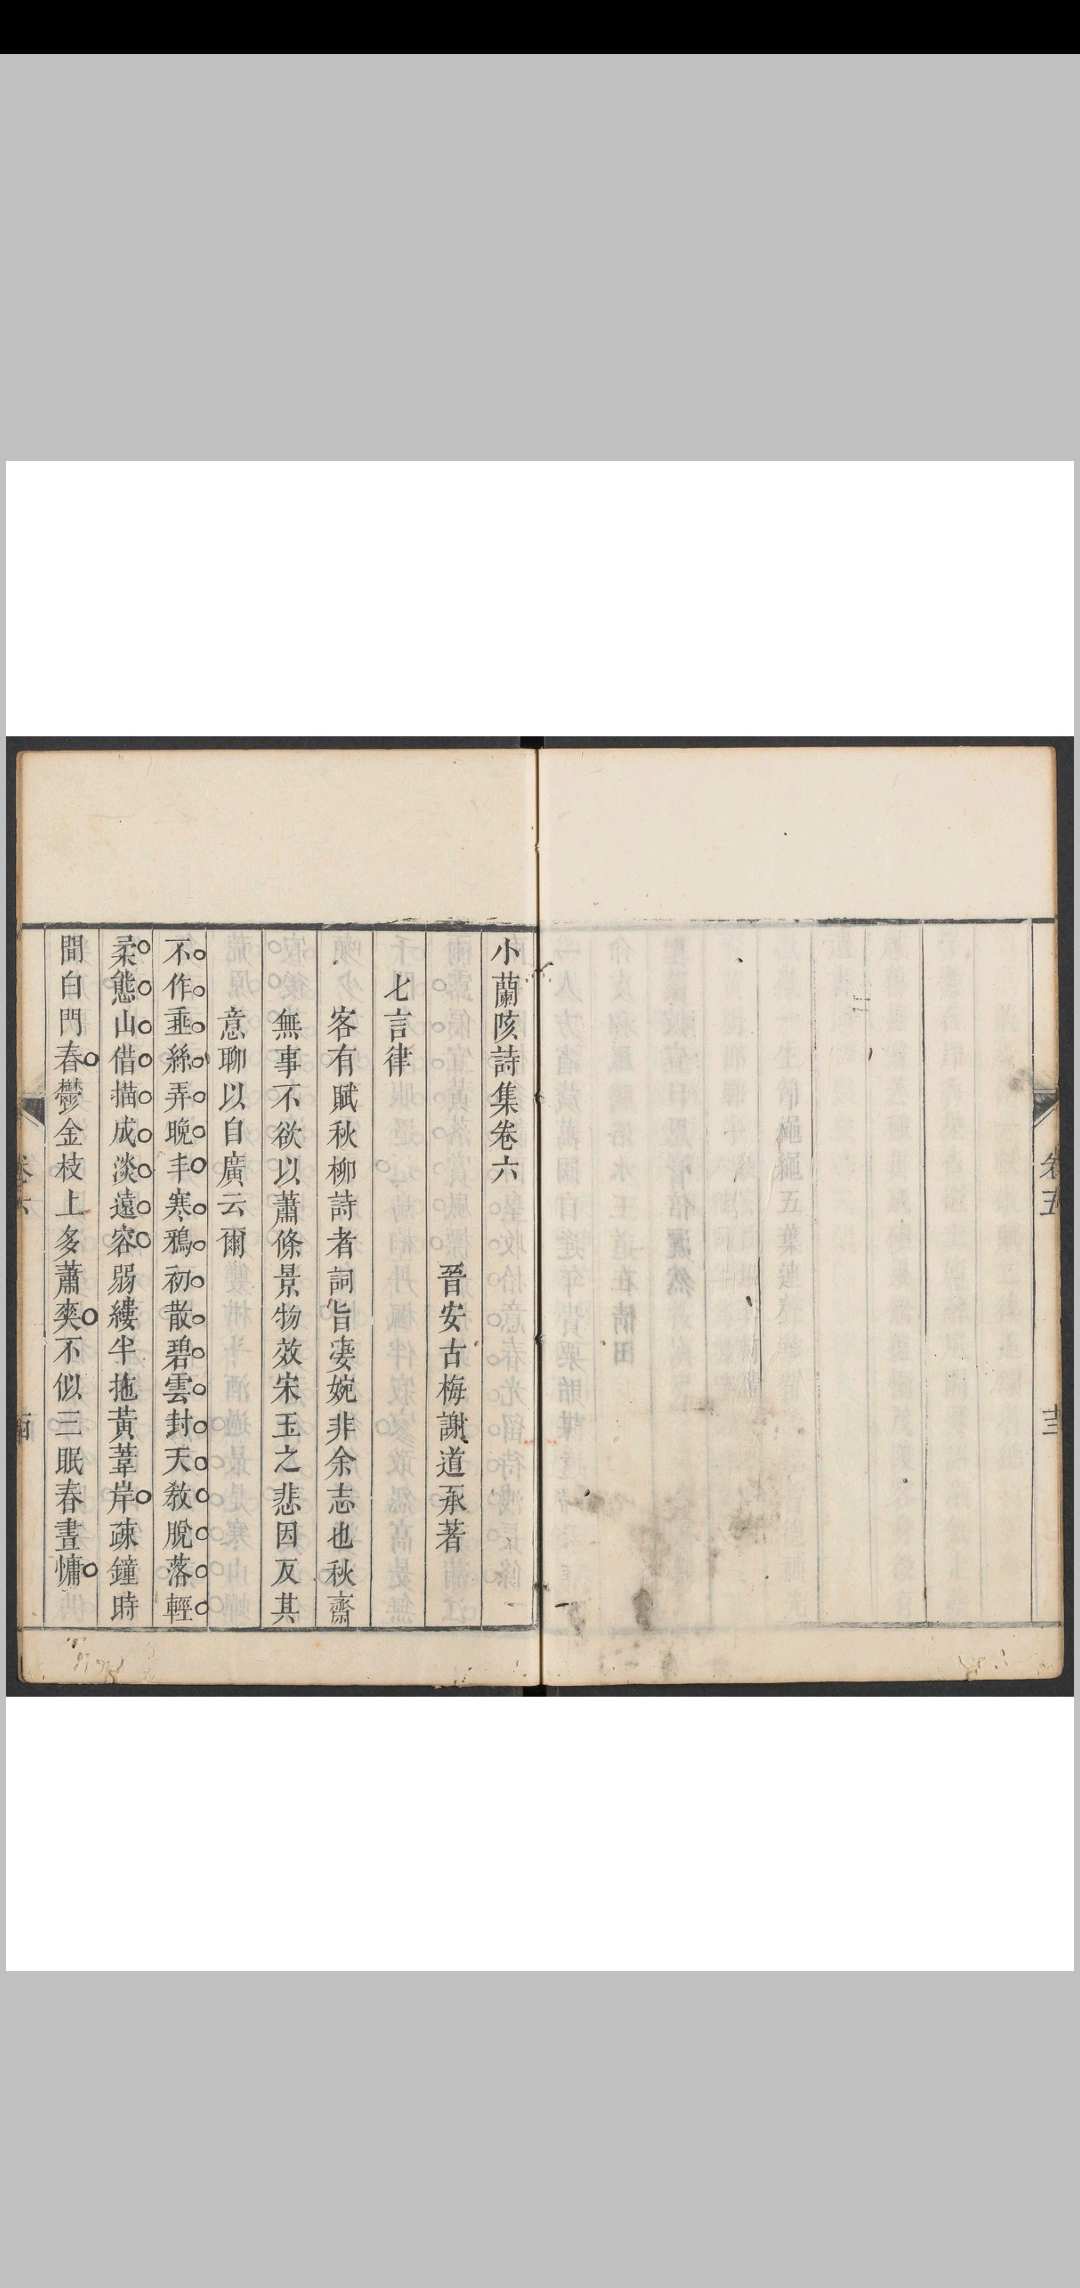 卷五
小蘭陔詩集卷六
晉安古梅謝道承著
七言律
客有賦秋柳詩者詞旨悽婉非余志也秋齋
無事不欲以蕭條景物效宋玉之悲因反其
意聊以自廣云爾
不作垂絲弄晚丰寒鴉初散碧雲封天教脫落輕
柔態山借描成淡遠容弱縷半拖黃葦岸疎鐘時
聞白門春鬱金枝上多蕭爽不似三眠春晝慵